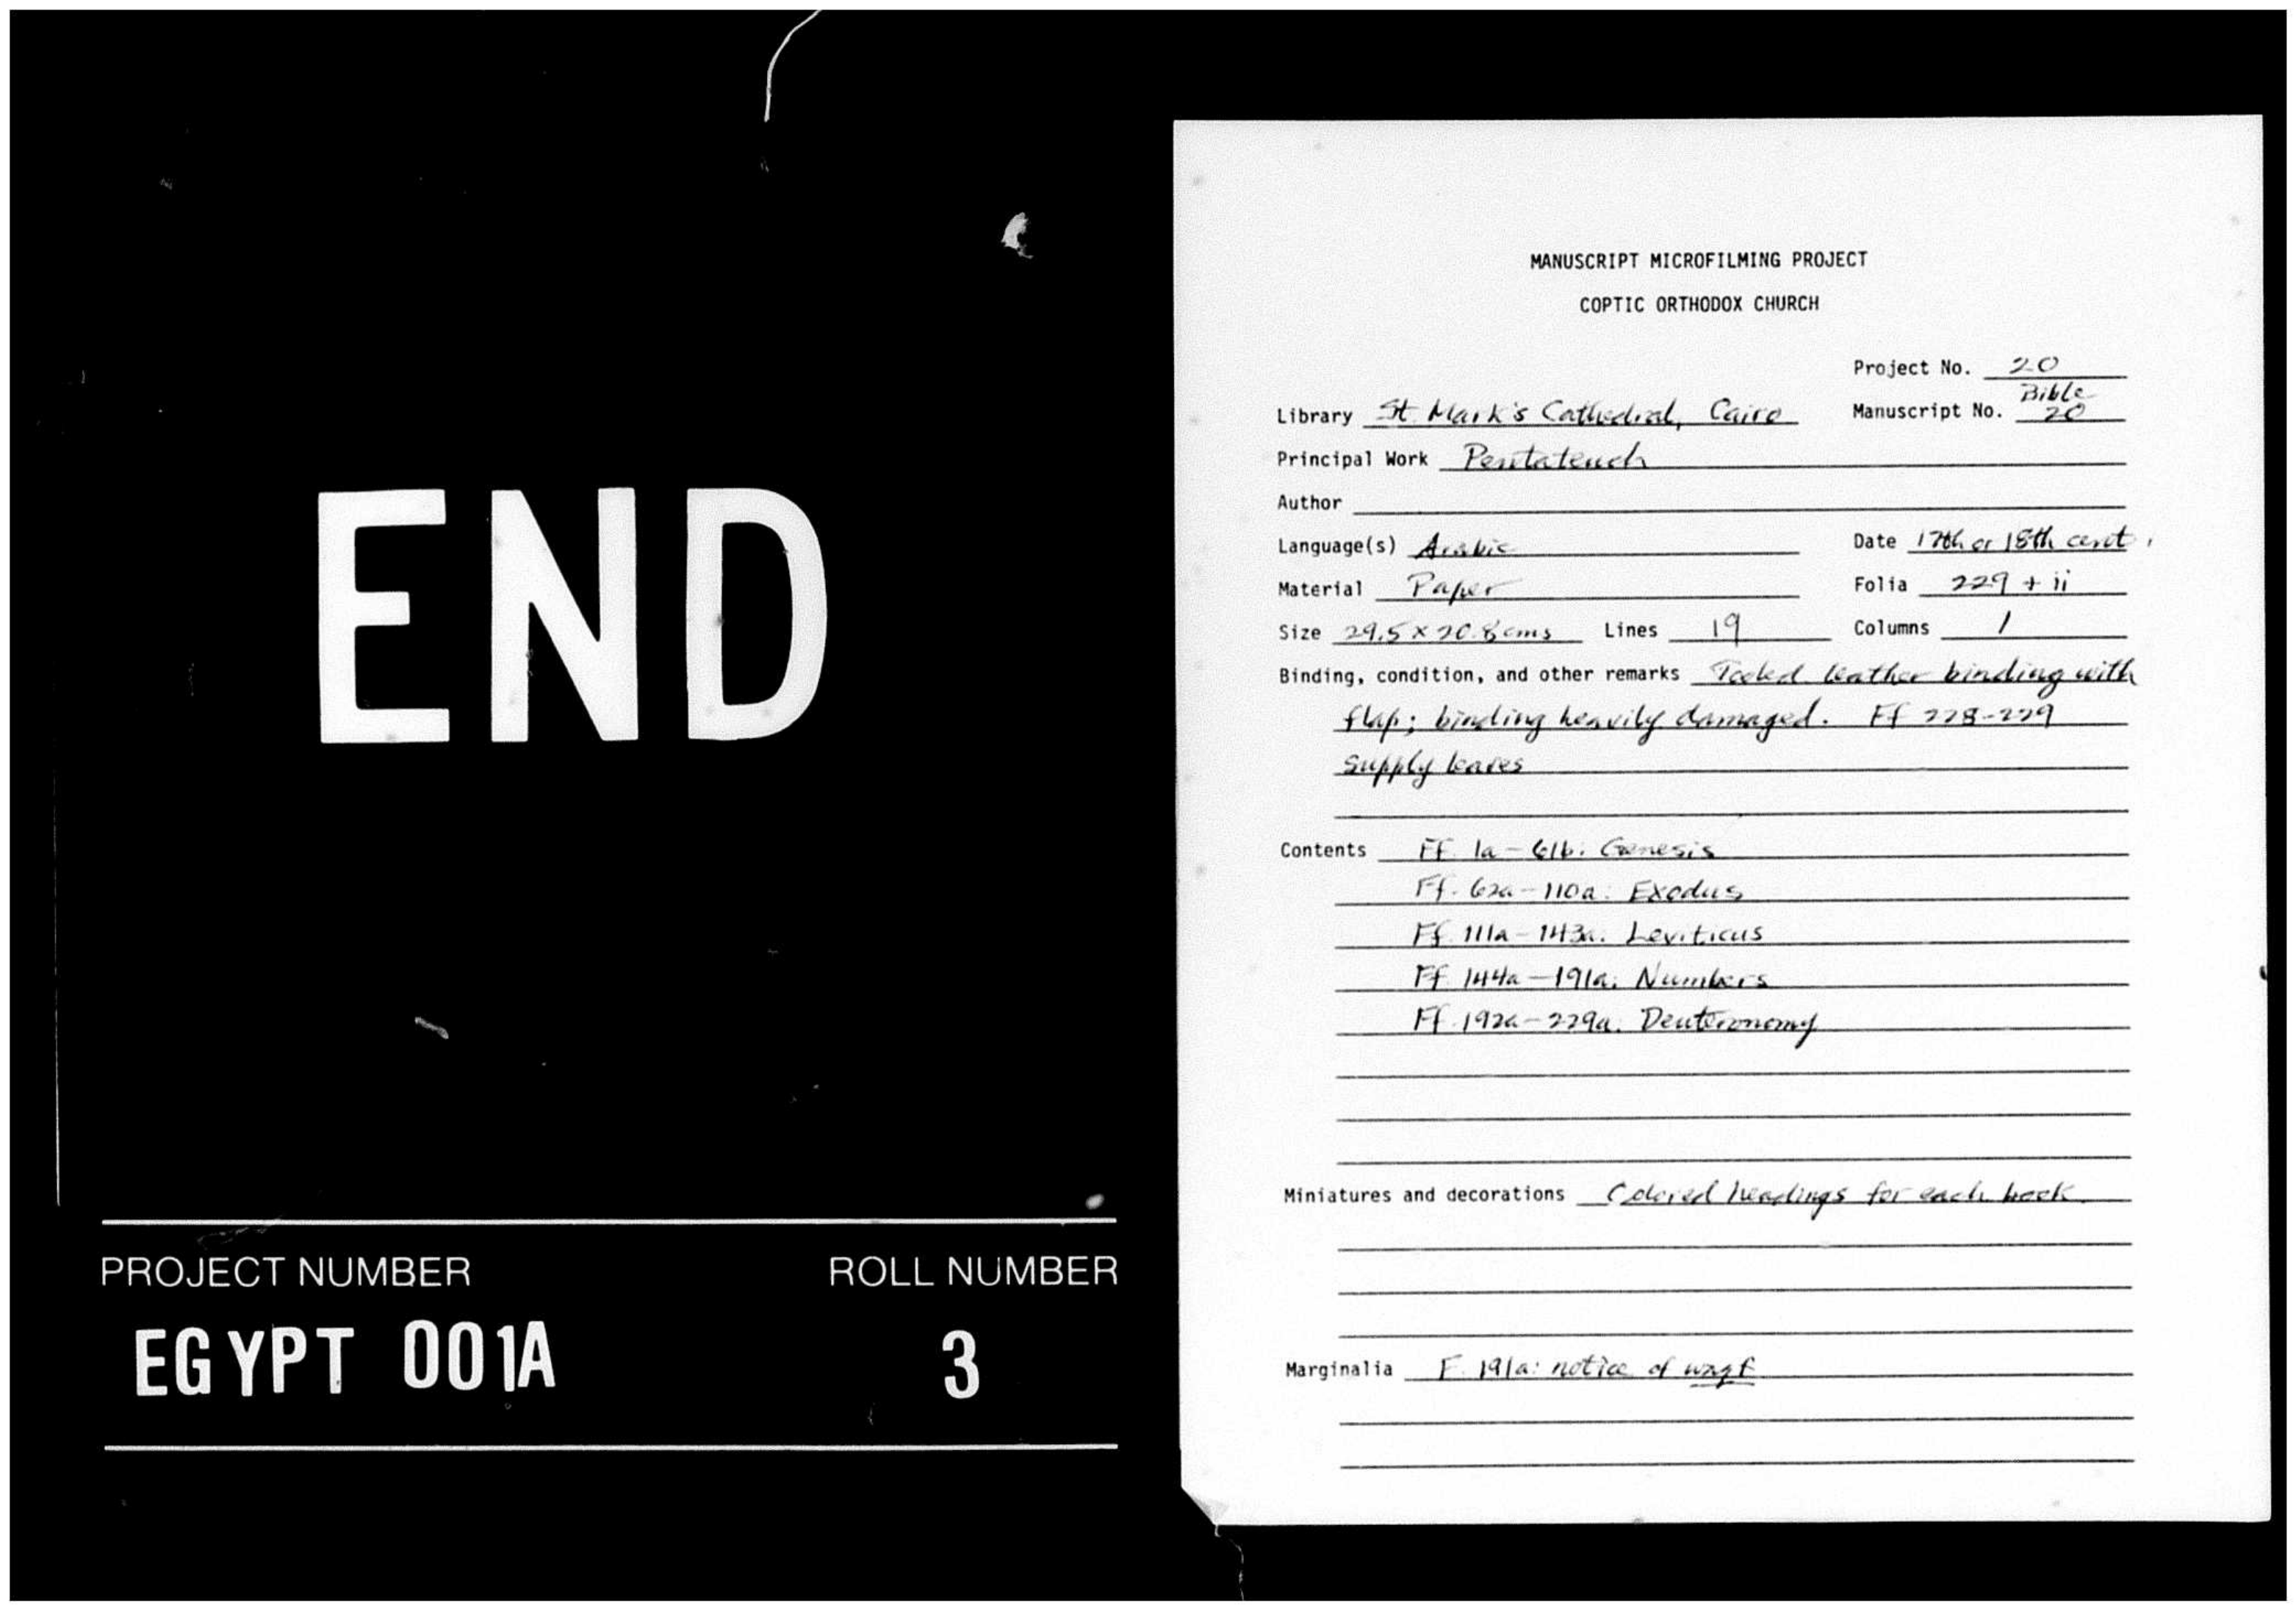 END
PROJECT NUMBER ROLL NUMBER
EGYPT 001A 3
MANUSCRIPT MICROFILMING PROJECT
COPTIC ORTHODOX CHURCH
Project No. 20
Library St. Mark's Cathedral, Cairo Manuscript No. Bible 20
Principal Work Pentateuch
Author
Language(s) Arabic Date 17th or 18th cent.
Material Paper Folia 229 + ii
Size 29.5 x 20.8 cms Lines 19 Columns 1
Binding, condition, and other remarks Tooled leather binding with
flap; binding heavily damaged. Ff 228-229
supply leaves
Contents Ff. 1a-61b: Genesis
Ff. 62a-110a: Exodus
Ff. 111a-143a: Leviticus
Ff. 144a-191a: Numbers
Ff. 192a-229a: Deuteronomy
Miniatures and decorations Colored headings for each book.
Marginalia F. 191a: notice of waqf